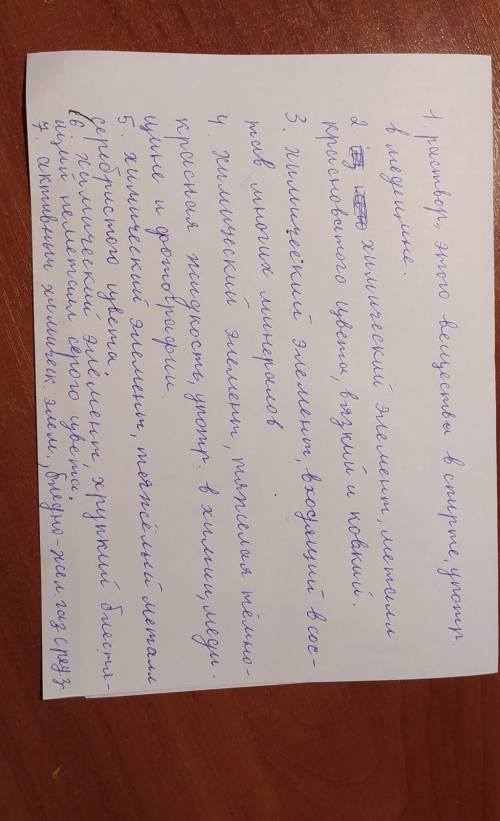 1. раствор этого вещества в спирте, употр.
в медицине.
2. химический элемент, металл
красноватого цвета, вязкий и ковкий.
3. химический элемент, входящий в сос-
тав многих минералов
4. химический элемент, тяжелая тёмно-
красная жидкость, употр. в химии, меди-
цине и фотографии.
5. химический элемент, тяжёлый металл
серебристого цвета.
6. химический элемент, хрупкий блестя-
щий неметалл серого цвета.
7. активный химическ. элем., бледно-жел. газ с резк.